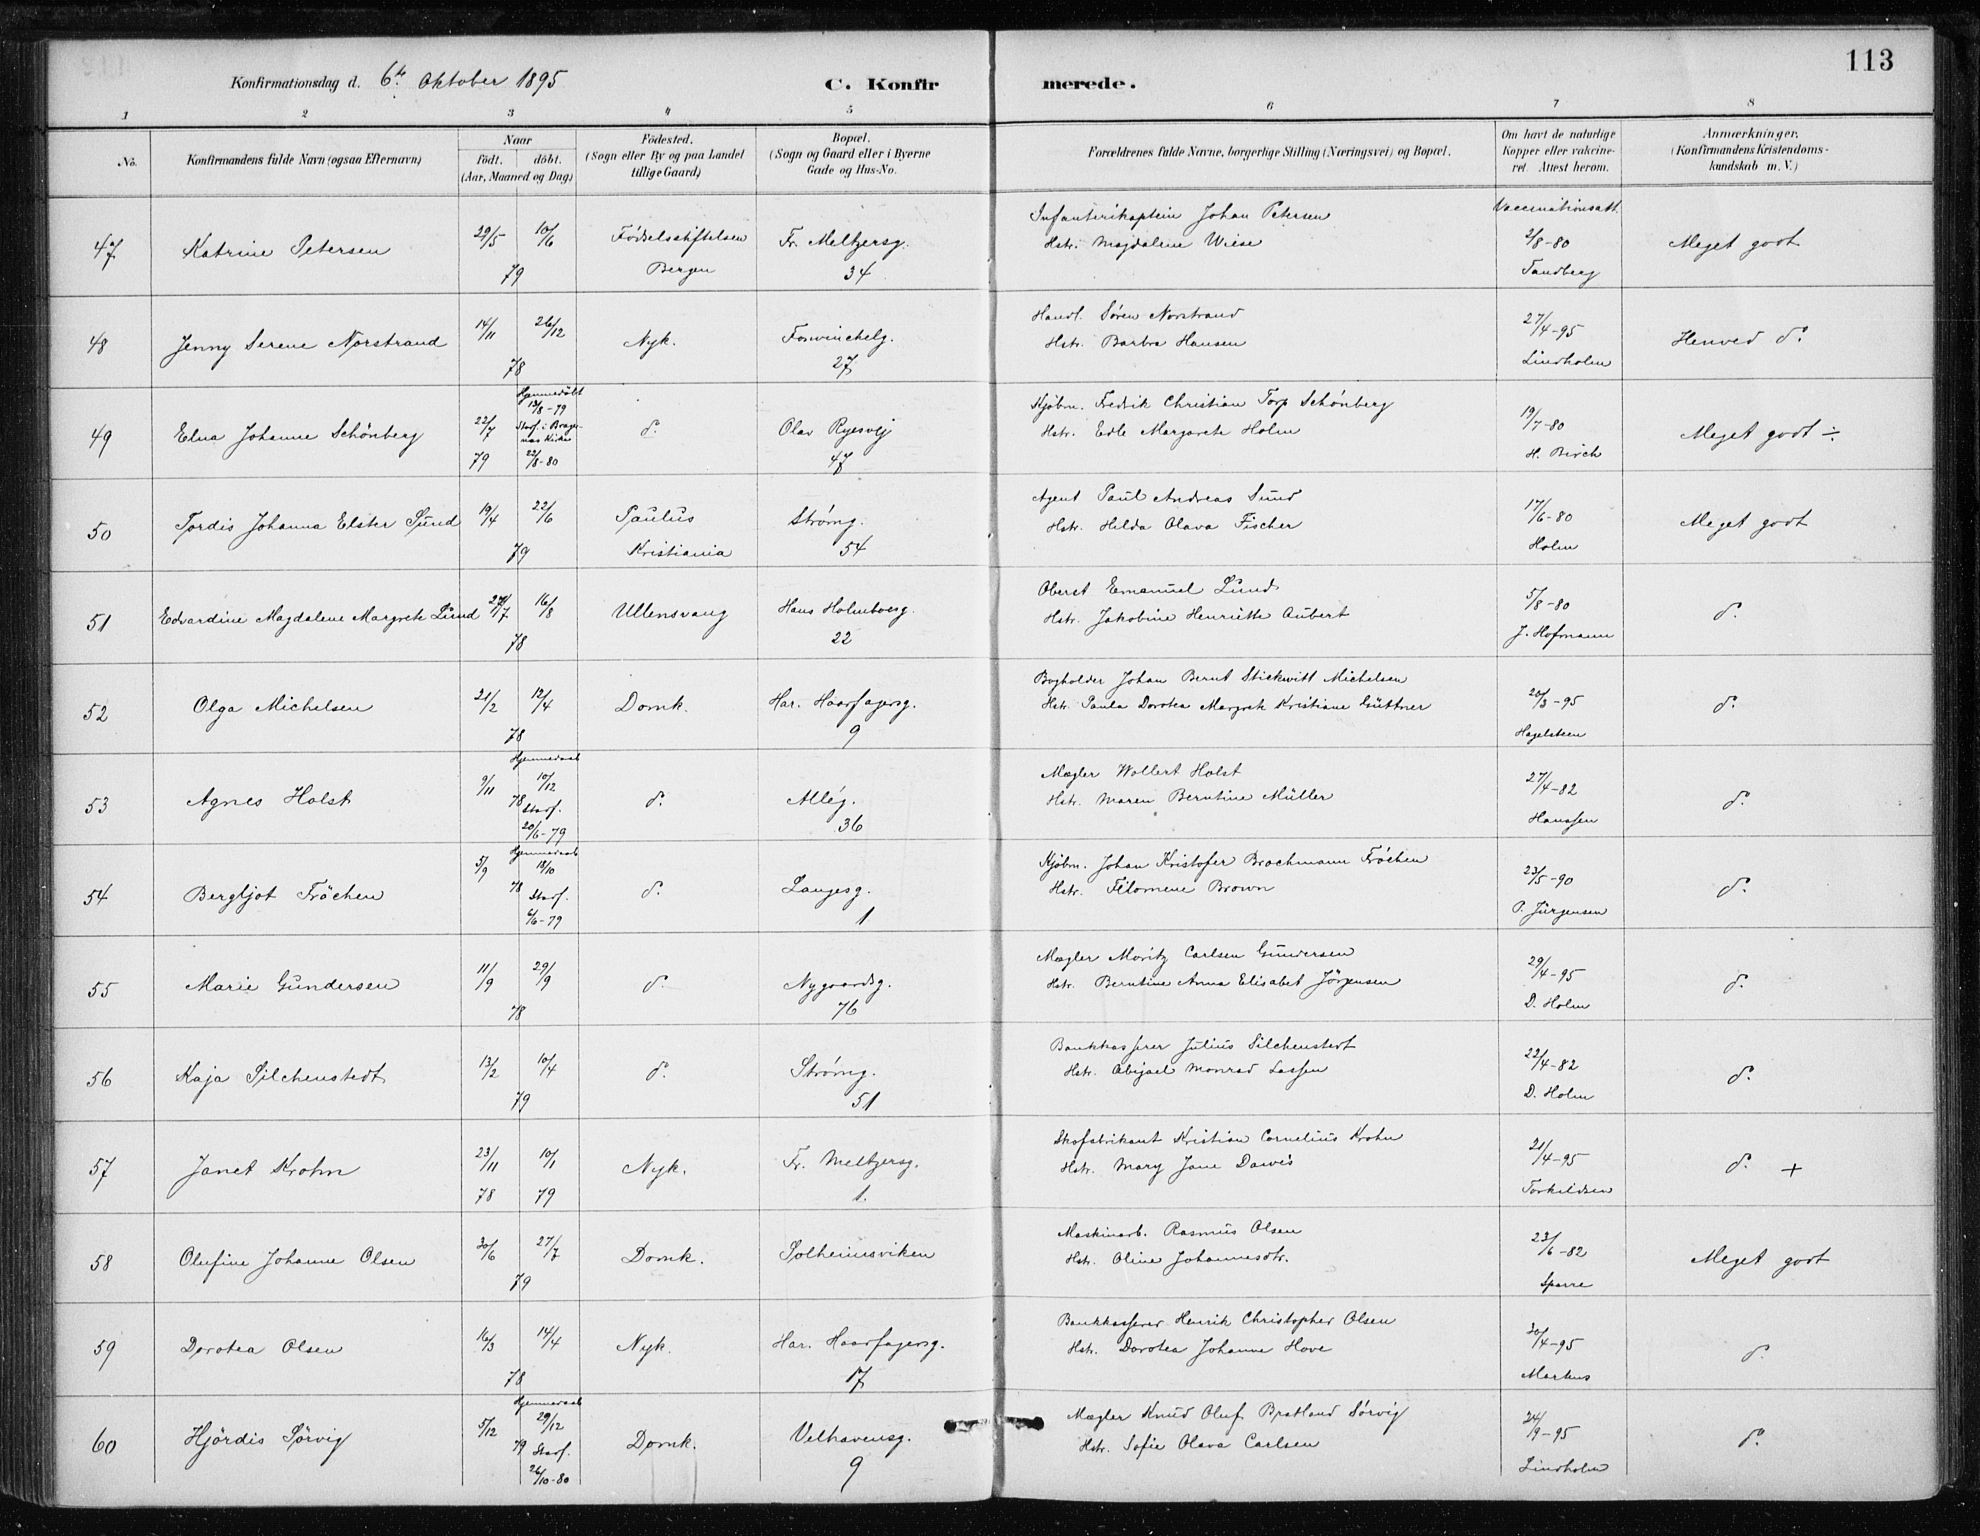 113
Konfirmationsdag d. 6te Oktober 1895
C. Konfir merede.
1 2 3 4 5 6 7 8
No.
Konfirmandens fulde Navn (ogsaa Efternavn)
Naar
födt. döbt.
(Aar, Maaned og Dag)
Födested.
(Sogn eller By og paa Landet
tillige Gaard)
Bopæl.
(Sogn og Gaard eller i Byerne
Gade og Hus-No.
Forældrenes fulde Navne, borgerlige Stilling (Næringsvei) og Bopæl.
Om havt de naturlige
Kopper eller vakcine-
ret. Attest herom.
Anmærkninger.
(Konfirmandens Kristendoms-
kundskab m. V.)
47 Katrine Petersen 29/5 10/6 79 Födselsstiftelsen Bergen Fr. Meltzersg. 34
Infanterikaptein Johan Petersen
Hstr. Magdalene Wiese
Vaccinationsatt. 2/8-80 Tandberg Meget godt
48 Jenny Serene Norstrand 14/11 26/12 78 Nyk. Foswinckelg. 27
Handl. Sören Norstrand
Hstr. Barbra Hansen
27/4-95 Lindholm Henved do.
49 Elna Johanne Schönberg 22/7 79 Hjemmedöbt 13/8-79 Stadf. i Brage-
nas Kirke 22/8-80 do. Olav Ryesvej 47
Kjöbm. Fredrik Christian Torp Schönberg
Hstr. Edle Margarete Holm
19/7-80 H. Birch Meget godt ÷
50 Tordis Johanna Elster Sund 19/4 22/6 79 Paulus Kristiania Strömg. 54
Agent Paul Andreas Sund
Hstr. Hilda Olava Fischer
17/6-80 Holm Meget godt
51 Edvardine Magdalene Margrete Lund 27/7 16/8 78 Ullensvang Hans Holmboesg. 22
Oberst Emanuel Lund
Hstr. Jakobine Henriette Aubert
5/8-80 J. Hofmann do.
52 Olga Michelsen 21/2 12/4 78 Domk. Har. Haarfagersg. 9
Bogholder Johan Bernt Stickwitt Michelsen
Hstr. Paula Dorotea Margrete Kristiane Güttner
20/3-95 Hagelsteen do.
53 Agnes Holst 9/11 78 Hjemmedaab 10/12 Stadf. 20/6-79 do. Allég. 36
Mægler Wollert Holst
Hstr. Maren Berntine Müller
27/4-82 Hanssen do.
54 Bergljot Fröchen 5/9 78 Hjemmedaab 18/10 Stadf. 6/6-79 do. Langesg. 1
Kjöbm. Johan Kristofer Brochmann Fröchen
Hstr. Filomene Brown
23/5-90 P. Jürgensen do.
55 Marie Gundersen 11/9 29/9 78 do. Nygaardsg. 76
Mægler Moritz Carlsen Gundersen
Hstr. Berntine Anna Elisabet Jörgensen
29/4-95 D. Holm do.
56 Kaja Silchenstedt 13/2 10/4 79 do. Strömg. 51
Bankkasserer Julius Silchenstedt
Hstr. Abigael Monrad Lassen
22/4-82 D. Holm do.
57 Janet Krohn 23/11 78 10/1 79 Nyk. Fr. Meltzersg. 1.
Skofabrikant Kristian Cornelius Krohn
Hstr. Mary Jane Dawes
21/4-95 Torkildsen do. +
58 Olufine Johanne Olsen 30/6 27/7 79 Domk. Solheimsviken
Maskinarb. Rasmus Olsen
Hstr. Oline Johannesdtr.
23/6-82 Sparre Meget godt
59 Dorotea Olsen 16/3 14/4 78 Nyk. Har. Haarfagersg. 17
Bankkasserer Henrik Christopher Olsen
Hstr. Dorotea Johanne Hove
30/4-95 Martens do.
60 Hjördis Sörvig 5/12 79 Hjemmedaab 29/12 Stadf. 26/10-80 Domk. Velhavensg. 9
Mægler Knud Oluf Bratland Sörvig
Hstr. Sofie Olava Carlsen
24/9-95 Lindholm do.